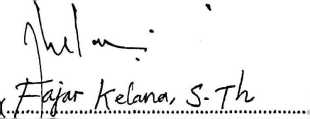 Fajar Kelana, S.Th